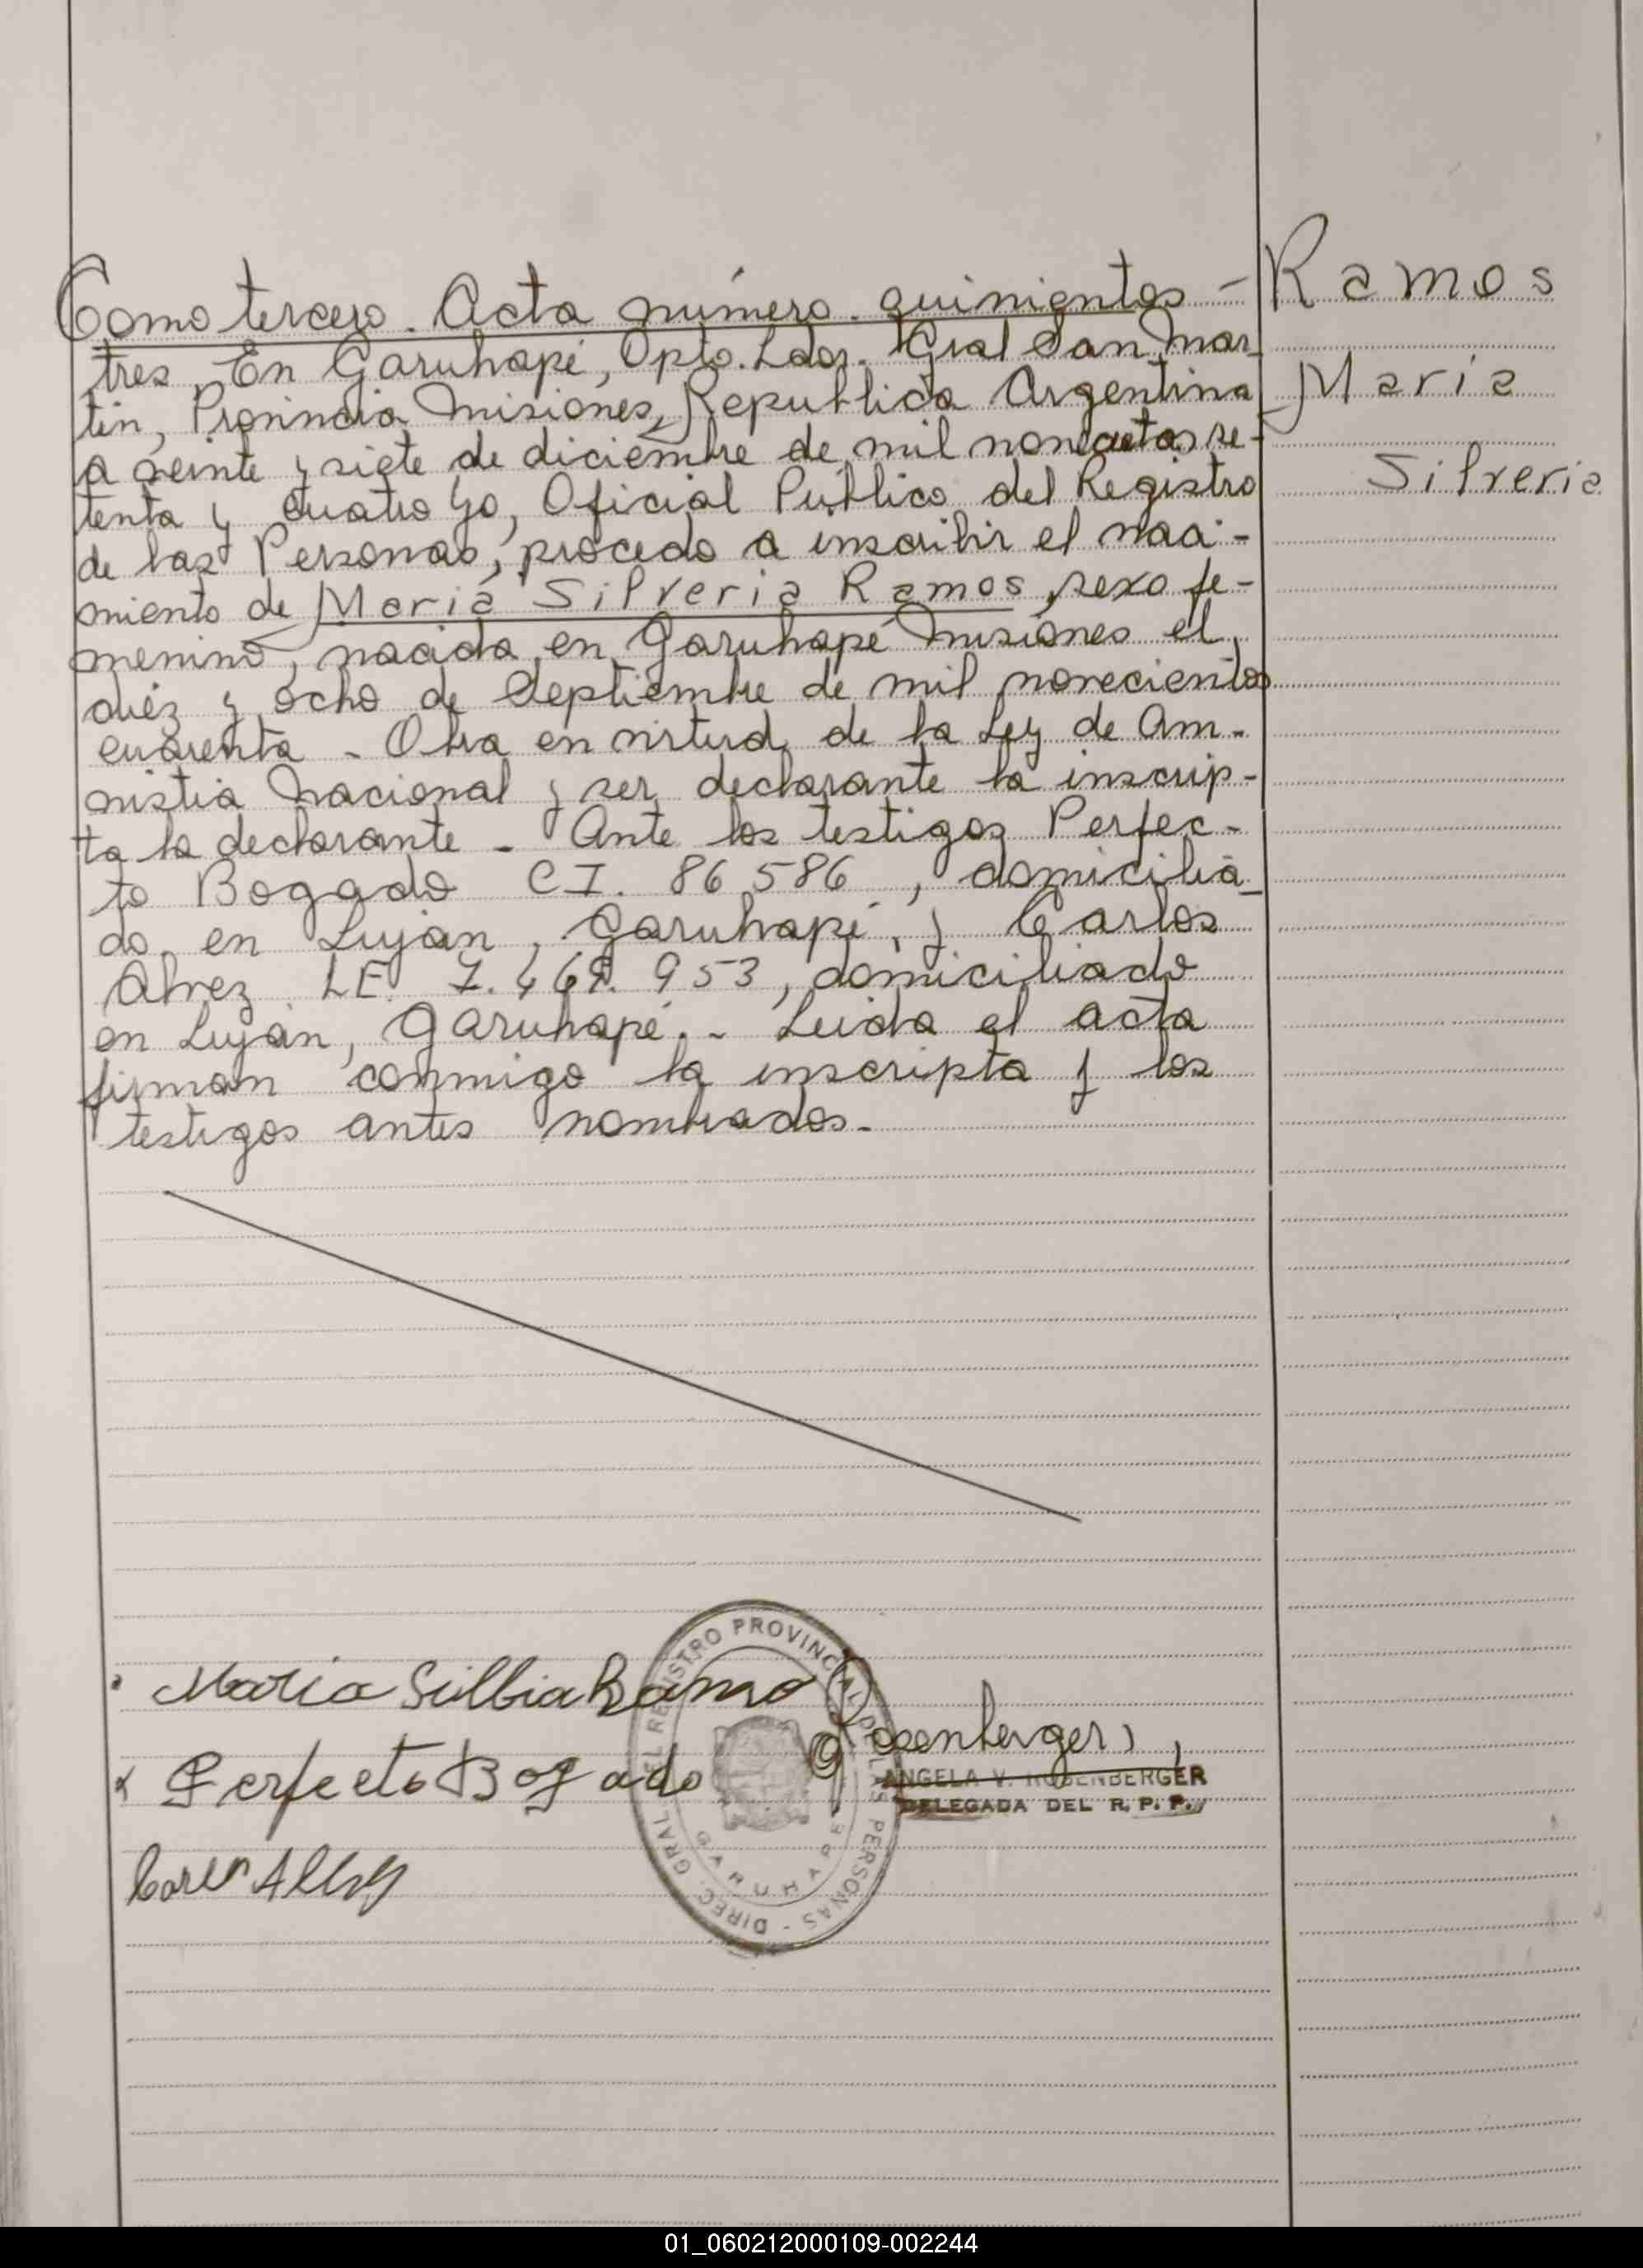 Tomo tercero. Acta número. quinientos -
tres. En Garuhapé, Dpto. Ldor. Gral San Mar-
tin, Provincia Misiones, Republica Argentina
a veinte y siete de diciembre de mil novecietos se-
tenta y cuatro Yo, Oficial Publico del Registro
de las Personas, procedo a inscribir el naci-
miento de Maria Silveria Ramos, sexo fe-
menino, nacida en Garuhapé Misiones el
diéz y ocho de Septiembre de mil novecientos
cuarenta - Obra en virtud de la Ley de Am-
nistia Nacional y ser declarante la inscrip-
ta la declarante - Ante los testigos Perfec-
to Bogado CI. 86 586, domicilia-
do en Luján, Garuhapé, y Carlos
Alvez LE. 7.469.953, domiciliado
en Luján, Garuhapé. - Leida el acta
firman conmigo la inscripta y los
testigos antes nombrados.-
Ramos
Maria
Silveria
Maria Silbia Ramo
Perfecto Bogado
Rosenberger
ANGELA V. ROSENBERGER
DELEGADA DEL R. P. P.
DIREC. GRAL. DEL REGISTRO PROVINCIAL DE LAS PERSONAS -
GARUHAPE
01_060212000109-002244